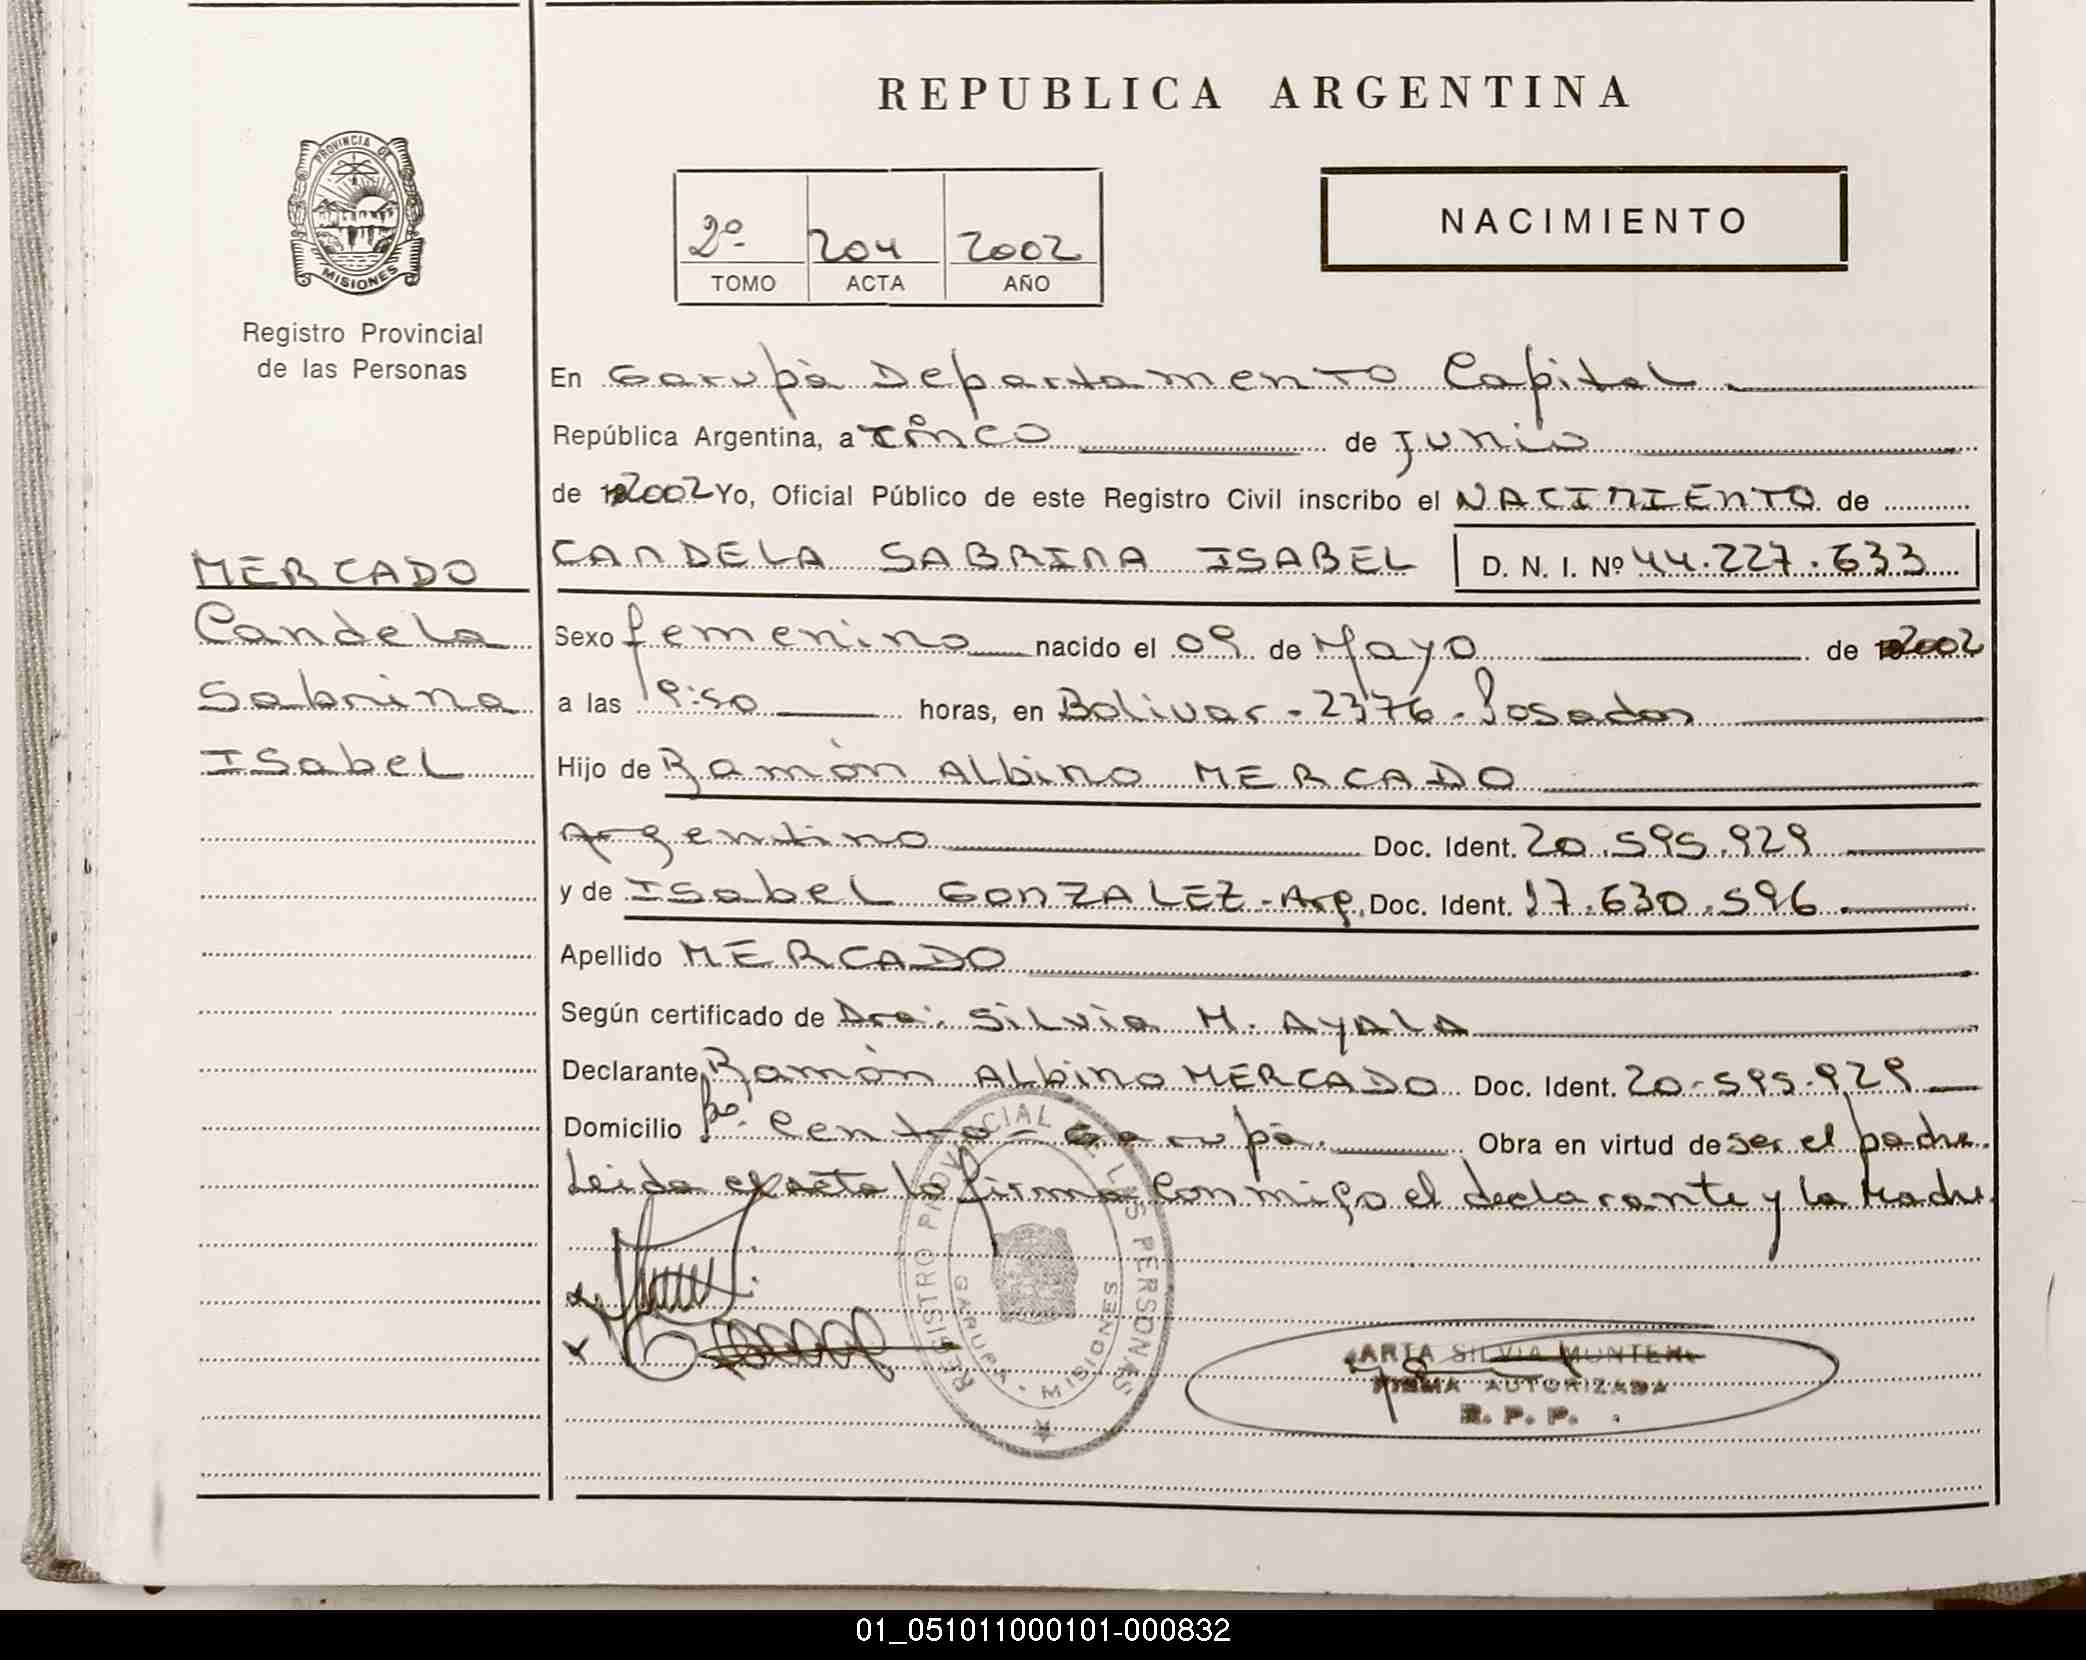 REPUBLICA ARGENTINA
PROVINCIA DE
MISIONES
NACIMIENTO
2º 204 2002
TOMO ACTA AÑO
Registro Provincial
de las Personas
En Garupà Departamento Capital.
República Argentina, a cinco de Junio
de 2002 Yo, Oficial Público de este Registro Civil inscribo el NACIMIENTO de
MERCADO
CANDELA SABRINA ISABEL D. N. I. Nº 44.227.633
Candela
Sexo femenino nacido el 09 de Mayo de 2002
Sabrina
a las 19:50 horas, en Bolivar - 2376 - Posadas
ISabel
Hijo de Ramòn Albino MERCADO
Argentino Doc. Ident. 20.595.929
y de ISabel GONZALEZ - Arg. Doc. Ident. 17.630.596.
Apellido MERCADO
Según certificado de Dra. Silvia M. AYALA
Declarante Ramòn Albino MERCADO Doc. Ident. 20-595.929
Domicilio Bº. Centro - Garupà. Obra en virtud de ser el padre.
Leida el acta la firma conmigo el declarante y la Madre.
REGISTRO PROVINCIAL DE LAS PERSONAS
GARUPA - MISIONES
SILVIA
FIRMA AUTORIZADA
R. P. P.
01_051011000101-000832